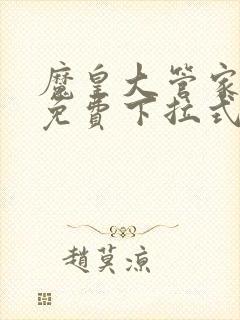 魔皇大管家
免費下拉式
趙莫涼